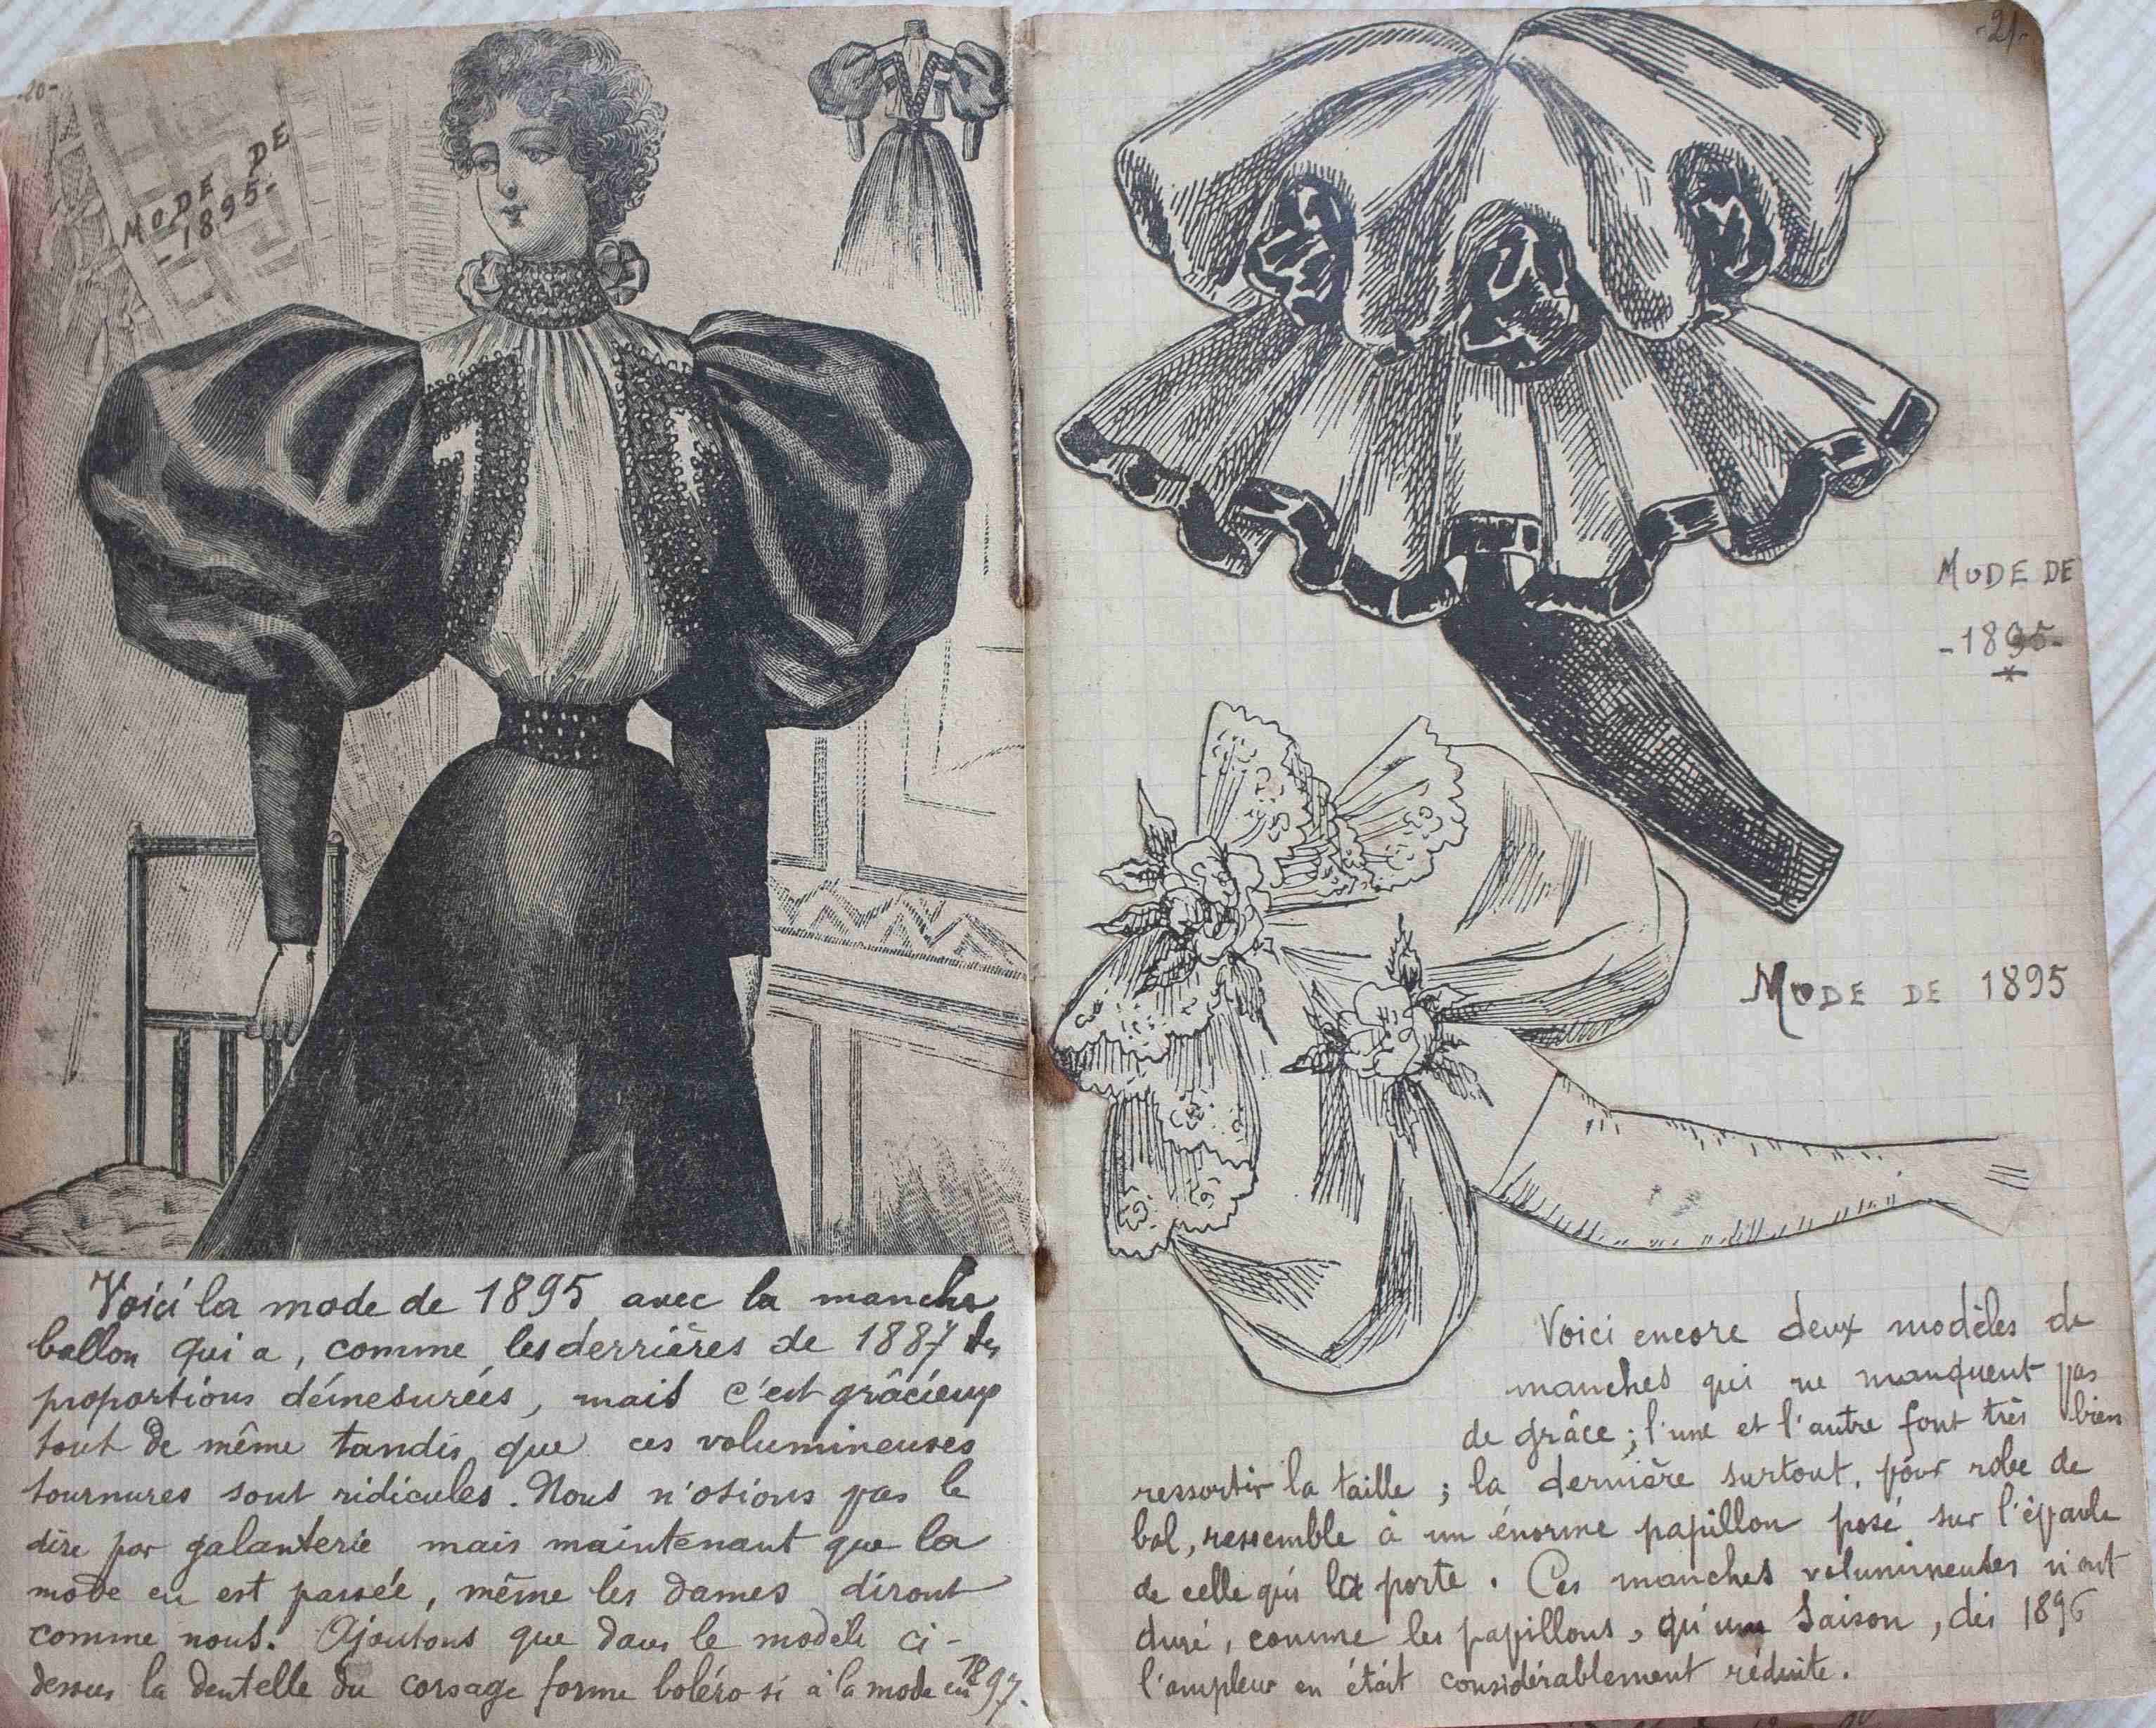 -20-
MODE DE
-1895-
Voici la mode de 1895 avec la manche
ballon qui a, comme les derrières de 1887 des
proportions démesurées, mais c'est grâcieux
tout de même tandis que ces volumineuses
tournures sont ridicules. Nous n'osions pas le
dire par galanterie mais maintenant que la
mode en est passée, même les dames diront
comme nous. Ajoutons que dans le modèle ci-
dessus la dentelle du corsage forme boléro si à la mode en 1897.
-21-
MODE DE
-1895-
MODE DE 1895
Voici encore deux modèles de
manches qui ne manquent pas
de grâce; l'une et l'autre font très bien
ressortir la taille; la dernière surtout, pour robe de
bal, ressemble à un énorme papillon posé sur l'épaule
de celle qui la porte. Ces manches volumineuses n'ont
duré, comme les papillons, qu'une saison, dès 1896
l'ampleur en était considérablement réduite.